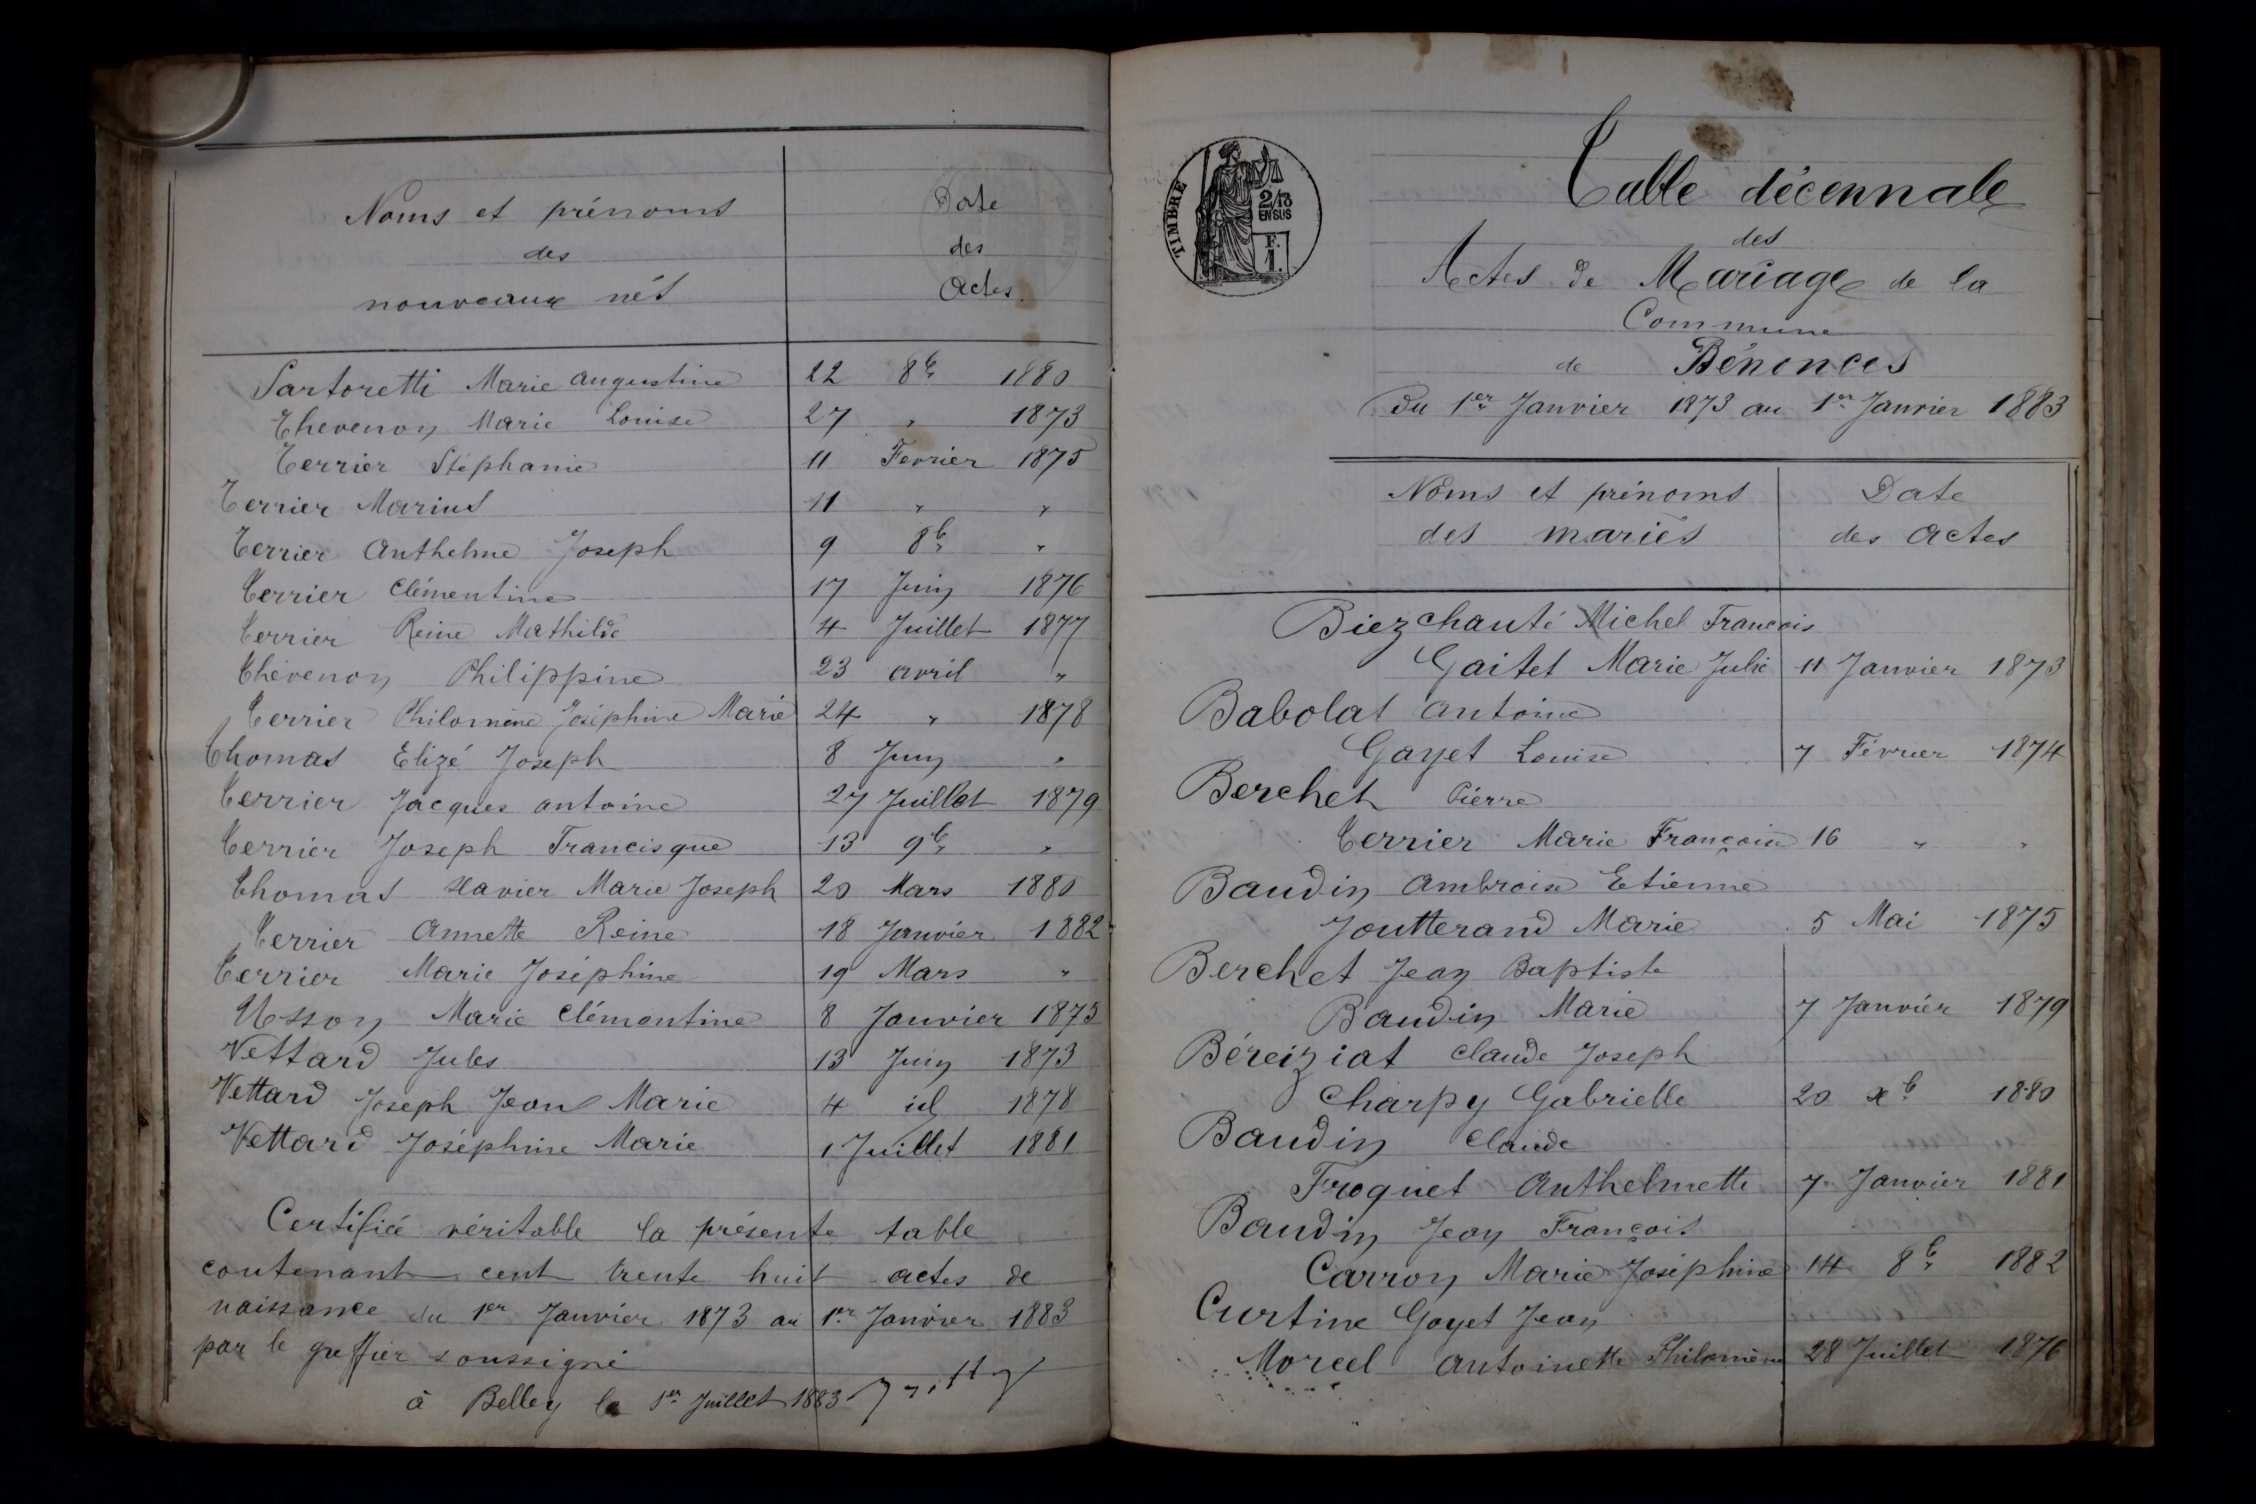 Noms et prénoms
des
nouveaux nés
Date
des
Actes
Sartoretti Marie Augustine 22 8b 1880
Thevenon Marie Louise 27 " 1873
Terrier Stéphanie 11 Fevrier 1875
Terrier Marius 11 " "
Terrier Anthelme Joseph 9 8b "
Terrier Clémentine 17 Juin 1876
Terrier Reine Mathilde 4 Juillet 1877
Thévenon Philippine 23 avril "
Terrier Philomène Joséphine Marie 24 " 1878
Thomas Elizé Joseph 8 Juin "
Terrier Jacques antoine 27 Juillet 1879
Terrier Joseph Francisque 13 9b "
Thomas Xavier Marie Joseph 20 Mars 1880
Terrier Annette Reine 18 Janvier 1882
Terrier Marie Joséphine 19 Mars "
Usson Marie Clémentine 8 Janvier 1875
Vettard Jules 13 Juin 1873
Vettard Joseph Jean Marie 4 id 1878
Vettard Joséphine Marie 1 Juillet 1881
Certifié véritable la présente table
contenant cent trente huit actes de
naissance du 1er Janvier 1873 au 1er Janvier 1883
par le greffier soussigné
à Belley le 1er Juillet 1883
TIMBRE
2/10
EN SUS
F.
1.
Table décennale
des
Actes de Mariage de la
Commune
de Bénonces
Du 1er Janvier 1873 au 1er Janvier 1883
Noms et prénoms
des mariés
Date
des Actes
Biez chauté Michel Francois
Gaitet Marie Julie 11 Janvier 1873
Babolat Antoine
Gayet Louise 7 Février 1874
Berchet Pierre
Terrier Marie Françoise 16 " "
Baudin Ambroise Etienne
Joutterand Marie 5 Mai 1875
Berchet Jean Baptiste
Baudin Marie 7 Janvier 1879
Béreiziat Claude Joseph
Charpy Gabrielle 20 xb 1880
Baudin Claude
Froquet Anthelmette 7 Janvier 1881
Baudin Jean François
Carron Marie Joséphine 14 8b 1882
Curtine Goyet Jean
Morcel Antoinette Philomène 28 Juillet 1876